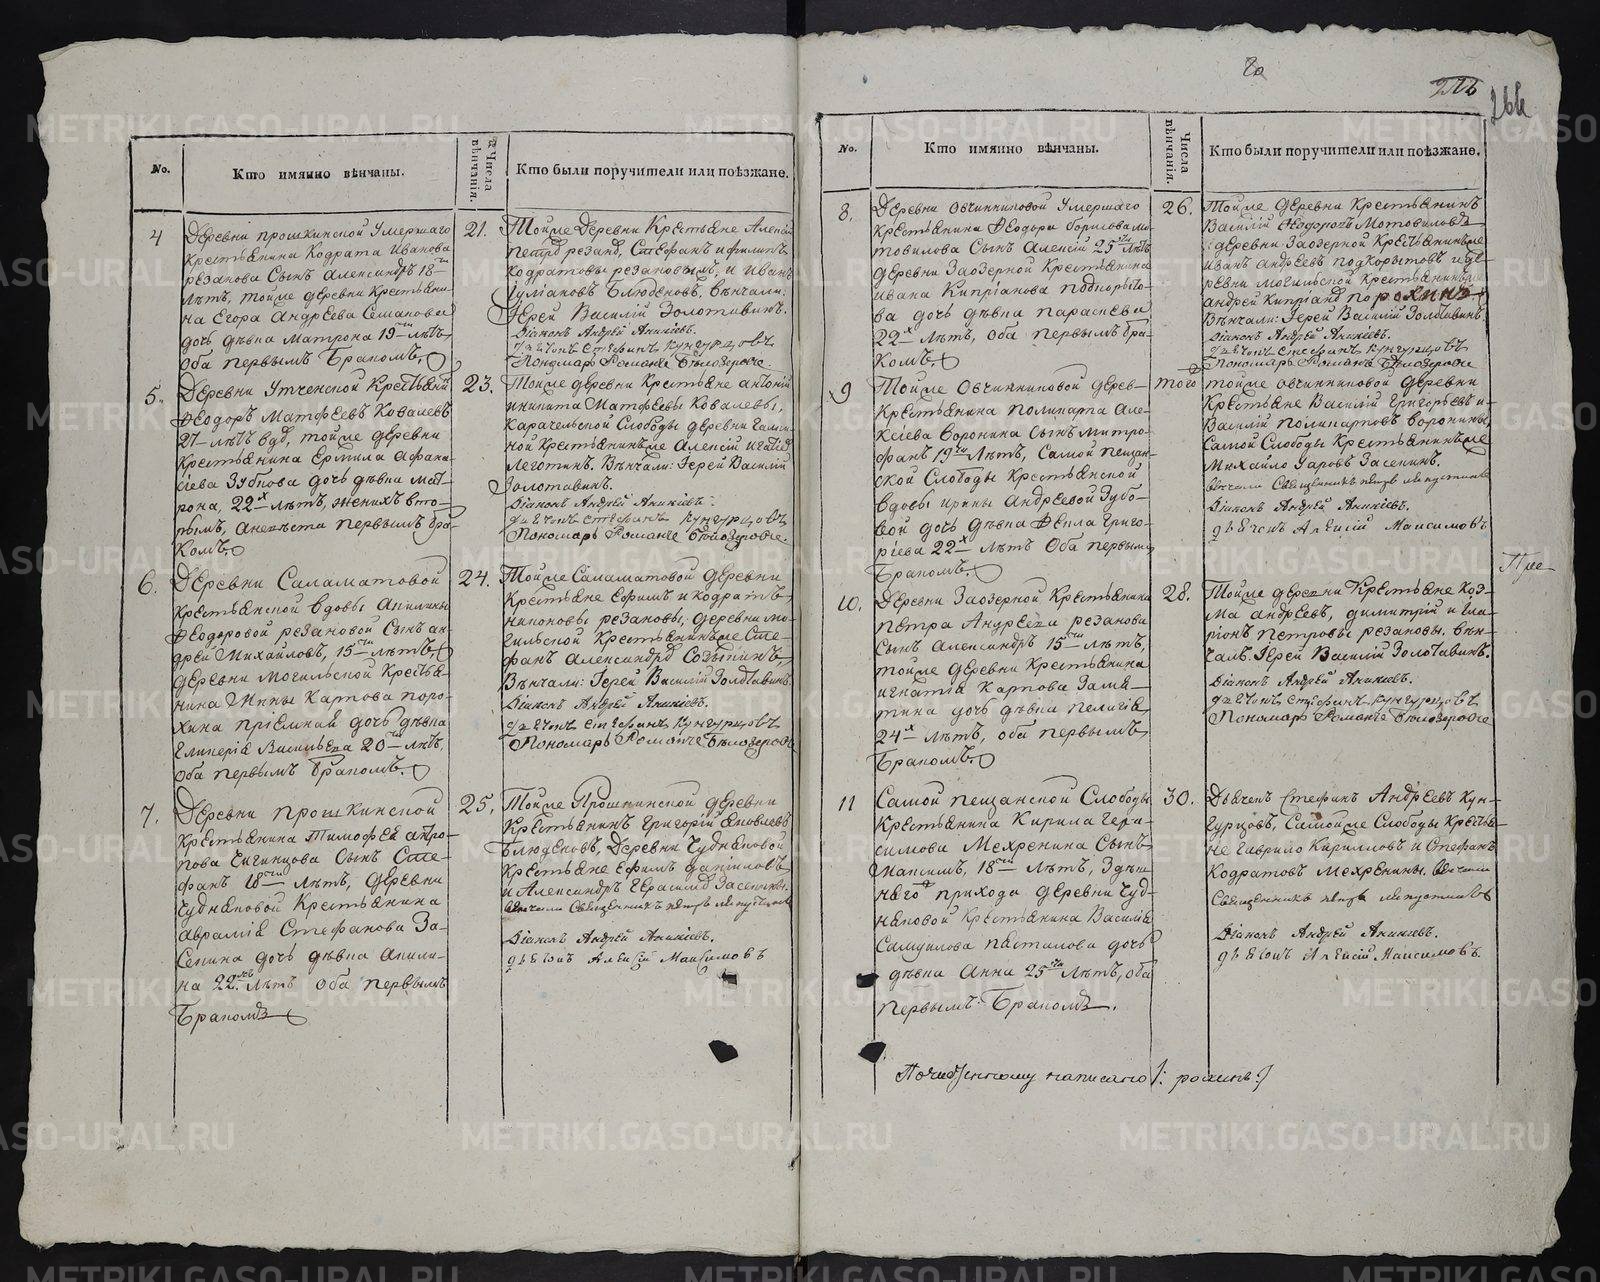 No.
Кто имянно вѣнчаны.
Числа вѣнчанія.
Кто были поручители или поѣзжане.
4
Деревни прошкинской Умершаго
крестьянина Кодрата Иванова
резанова Сынъ Александръ 18
лѣтъ, тойже деревни Крестьяни-
на Егора Андреева
дочь дѣвка Матрона 19 лѣтъ
оба первымъ бракомъ.
21.
Тойже Деревни Крестьяне Алексѣй
резанов, Стефанъ и филипъ
Кодратовы резановы, и Иванъ
Блюденовъ, вѣнчали:
Іерей Василій Золотавинъ.
Діаконъ Андрей Аникіевъ.
дьячокъ Стефанъ Кунгурцовъ
Пономарь Романъ Бѣлозеровъ
5.
Деревни Утченской Крестьянинъ
Феодоръ Матфеевъ Ковалевъ
27 лѣтъ вдов, тойже деревни
Крестьянина Ермила Афана-
сіева Зубкова дочь дѣвка мат-
рона, 22 лѣтъ, женихъ вто-
рымъ, а невѣста первымъ бра-
комъ.
23.
Тойже деревни Крестьяне антоній
иникита Матфеевы Ковалевы,
Карачельской Слободы деревни
ной Крестьянинъ же Алексій
Леготинъ. Вѣнчали: Іерей Василій
Золотавинъ.
Діаконъ Андрей Аникіевъ.
дьячокъ Стефанъ Кунгурцовъ
Пономарь Романъ Бѣлозеровъ.
6.
Деревни Саламатовой
крестьянской вдовы Акилины
Феодоровой резановой Сынъ ан-
дрей Михайловъ, 15 лѣтъ
деревни Могильской Крестья-
нина Мины Карпова поро-
хина пріемная дочь дѣвка
Гликерія Васильева 20 лѣтъ,
оба первымъ бракомъ.
24.
Тойже Саламатовой деревни
Крестьяне Ефимъ и кодратъ
никоновы резановы, деревни мо-
гильской Крестьянинъ же Сте-
фанъ Александров
Вѣнчали: Іерей Василій Золотавинъ
Діаконъ Андрей Аникіевъ.
дьячокъ Стефанъ Кунгурцовъ
Пономарь Романъ Бѣлозеровъ
7.
Деревни прошкинской
Крестьянина Тимофея антро-
пова Сынъ Сте-
фанъ 18 лѣтъ, деревни
Чудняковой Крестьянина
аврамія Стефанова За-
сепина дочь дѣвка акили-
на 22 лѣтъ оба первымъ
Бракомъ
25.
Тойже Прошкинской деревни
Крестьянинъ Григорій Яковлевъ
Блюденовъ, Деревни Чудняковой
Крестьяне Ефимъ даніиловъ
и Александръ Герасимов Засепины.
вѣнчали Священникъ петръ
Діаконъ Андрей Аникіевъ.
дьячокъ Алексій Максимовъ
266
No.
Кто имянно вѣнчаны.
Числа вѣнчанія.
Кто были поручители или поѣзжане.
8.
Деревни Овчинниковой Умершаго
крестьянина Феодора борисова мо-
товилова Сынъ Алексій 25 лѣтъ
деревни Заозерной Крестьянина
ивана Кипріанова подкорыто-
ва дочь дѣвка параскева
22 лѣтъ, оба первымъ бра-
комъ.
26.
Тойже деревни Крестьянинъ
Василій Феодоровъ Мотовиловъ
деревни Заозерной Крестьянинъ же
Иванъ андреевъ подкорытовъ и де-
ревни могильской Крестьянинъ же
андрей Кипріанов порохинъ
Вѣнчали: Іерей Василій Золотавинъ
Діаконъ Андрей Аникіевъ.
дьячокъ Стефанъ Кунгурцовъ
Пономарь Романъ Бѣлозеровъ
9
Тойже Овчинниковой дерев-
Крестьянина поликарпа Але-
ксіева Воронина Сынъ митро-
фанъ 19 лѣтъ, Самой пещан-
ской Слободы Крестьянской
вдовы ирины Андреевой Зубо-
вой дочь дѣвка Фекла Григо-
ріева 22 лѣтъ Оба первымъ
бракомъ.
того
тойже овчинниковой деревни
Крестьяне Василій Григорьевъ и
Василій поликарповъ воронины,
Самой Слободы Крестьянинъ же
Михайло Уаровъ Засепинъ.
вѣнчали Священникъ петръ
Діаконъ Андрей Аникіевъ.
дьячокъ Алексій Максимовъ
10.
Деревни Заозерной Крестьянина
петра Андреева резанова
Сынъ александръ 15 лѣтъ,
тойже деревни Крестьянина
игнатія Карпова Замя-
тина дочь дѣвка пелагія
24 лѣтъ, оба первымъ
Бракомъ.
28.
Тойже деревни Крестьяне Коз-
ма андреевъ, димитрій и Ила-
ріонъ петровы резановы. вѣн-
чалъ: Іерей Василій Золотавинъ.
Діаконъ Андрей Аникіевъ.
дьячокъ Стефанъ Кунгурцовъ
Пономарь Романъ Бѣлозеровъ
11
Самой пещанской Слободы
Крестьянина Кирила Гера-
симова Мехренина Сынъ
Максимъ, 18 лѣтъ, Здѣш-
няго прихода деревни Чуд-
няковой Крестьянина Василія
Самуилова дочь
дѣвка Анна 25 лѣтъ, оба
первымъ Бракомъ.
30.
Дьячекъ Стефанъ Андреевъ Кун-
гурцовъ, Самой же Слободы Крестья-
не гаврило Кириловъ и Стефанъ
Кодратовъ Мехренины. вѣнчали
Священникъ петръ
Діаконъ Андрей Аникіевъ.
дьячокъ Алексій Максимовъ.
Почищенному написано /: рохинъ :/
METRIKI.GASO-URAL.RU